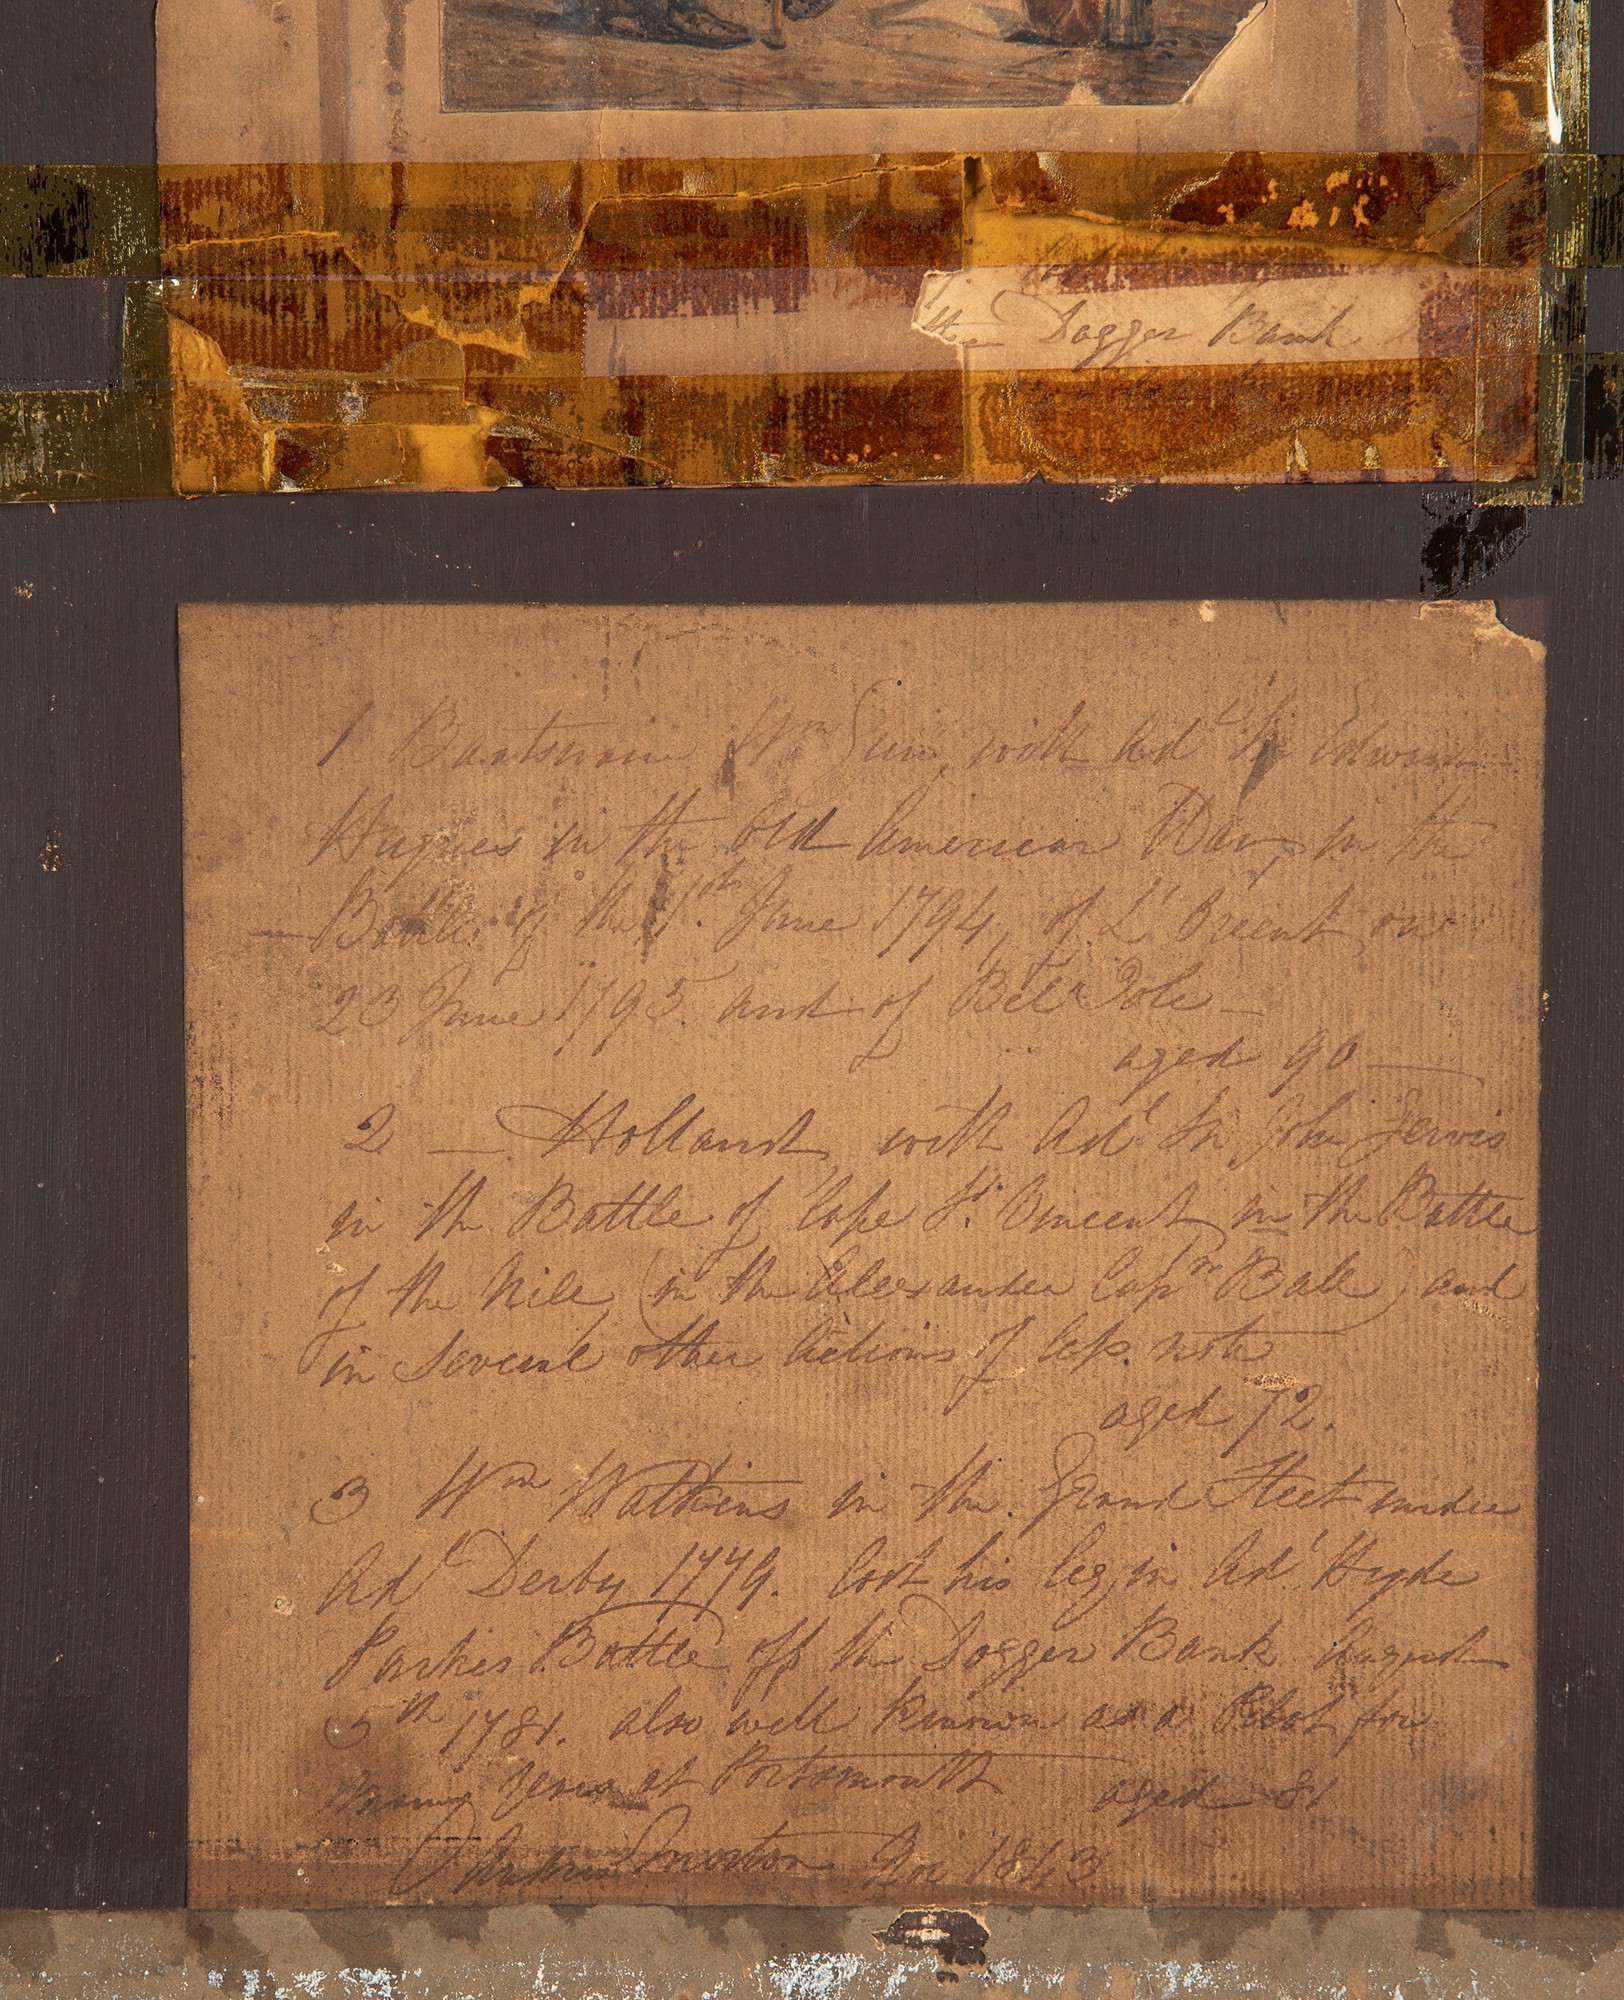 the Dogger Bank
1 Boatswain Wm Gun, with Adl Sir Edward
Hughes in the Old American War, in the
Battle of the 1st June 1794, of L'Orient on
23 June 1795. and of Bell Isle —
aged 90 —
2 — Holland, with Adl Sir John Jervis
in the Battle of Cape St. Vincent, in the Battle
of the Nile (in the Alexander Capn Ball) and
in several other Actions of less note
aged 72.
3 Wm Watkins in the Grand Fleet under
Adl Derby 1779. lost his leg in Adl Hyde
Parkes Battle off the Dogger Bank August
5th 1781. also well known as a Pilot for
many years at Portsmouth aged 81
Andrew Morton Nov 1843